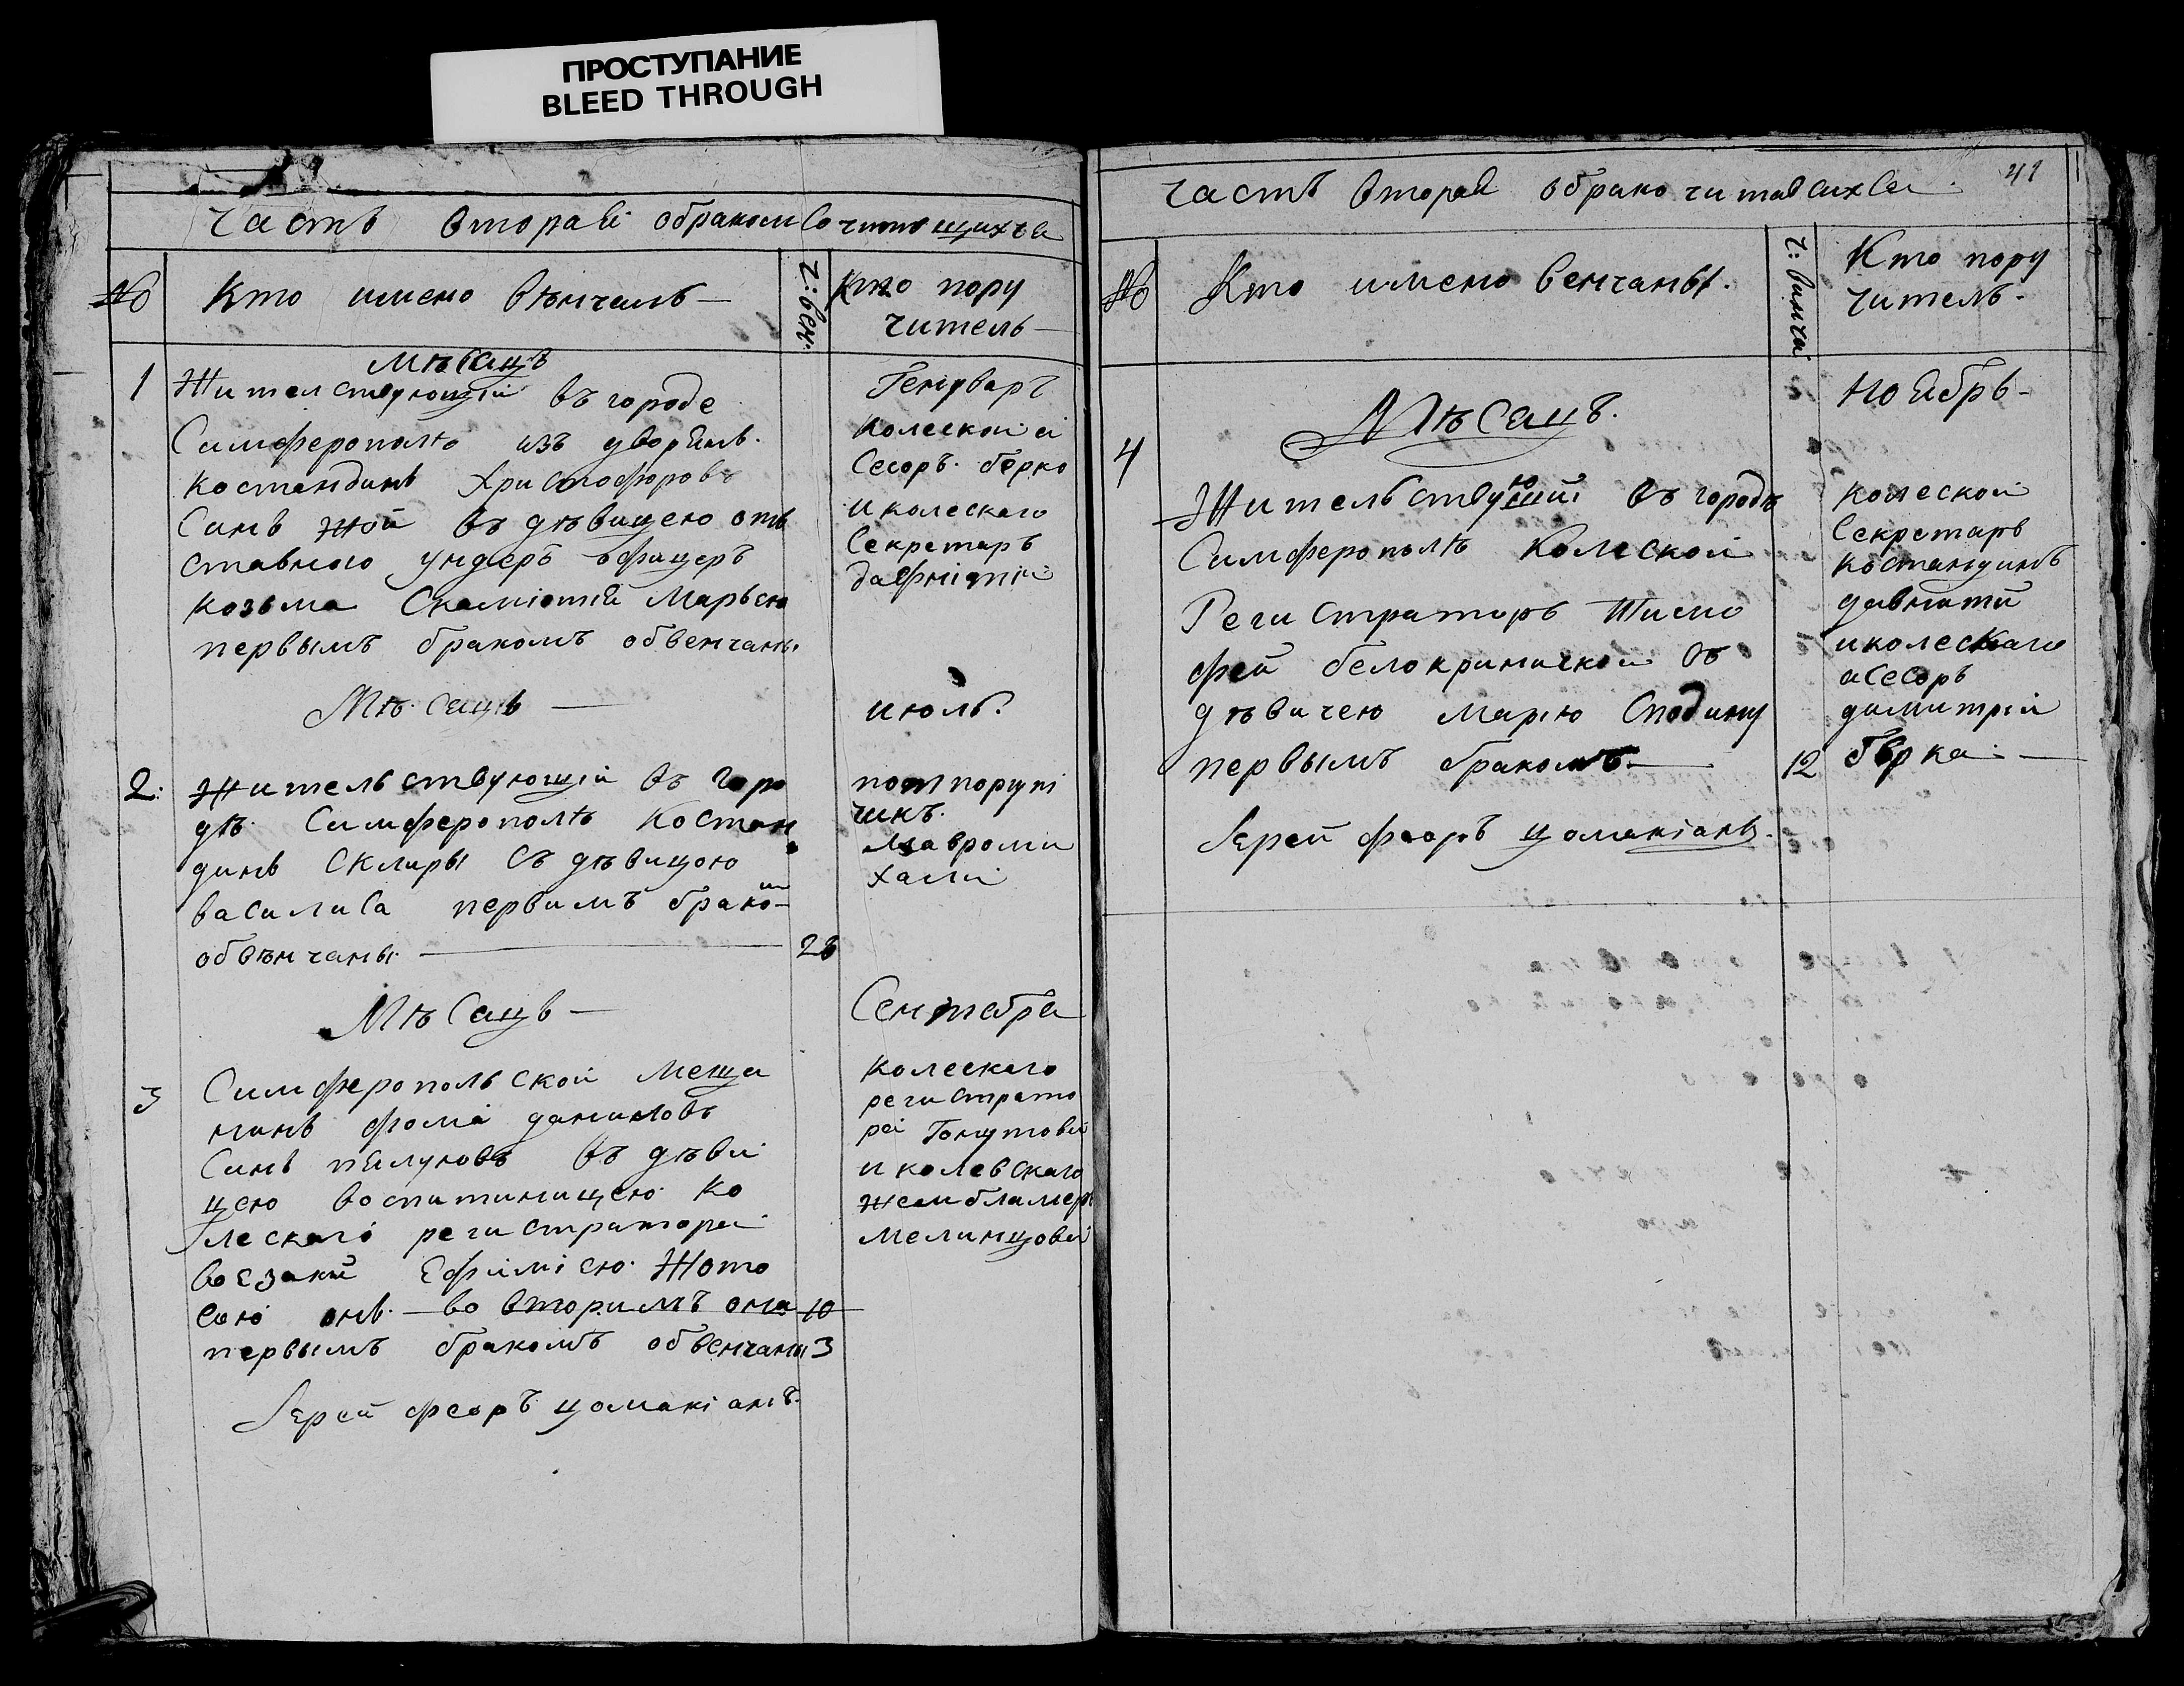 ПРОСТУПАНИЕ
BLEED THROUGH
Часть вторай обракомъ сочитающихса
№ Кто имено вѣнчанъ — Ч: вен. Кто пору
читель —
Мѣсацъ Генуваръ
1 Жителствующій въ городе
Симферополю изъ дворянъ.
Костандинъ Христофоровъ
Синъ Жой въ дѣвицею отъ
ставного ундеръ офицеръ
Козьма Скаміотій Марьею
первымъ бракомъ обвенчаны
Колеской а
Сесоръ. берко
и колескаго
Секретаръ
дафнітій
Мѣсацъ — июль.
2. Жительствующій въ горо
дѣ. Симферополѣ Костан
динъ Склиры съ дѣвицою
василиса первимъ брако
обвѣнчаны — 28
потпоручі
чикъ.
Мавроми
хали
Мѣсацъ — Сентабра
3 Симферопольской меща
нинъ фома даниловъ
Синъ въ дѣви
цею воспитиницею Ко
лескаго регистратора
Ефиміею. Жото
ею онъ. — во вторимъ она 10
первымъ бракомъ обвенчаны 3
Колескаго
регистрато
ра
и колевскаго
Мелинцовы
Іерей феоръ цомакіанъ.
41
Часть вторай обрако читавсихса
№ Кто имено венчаны. Ч: винча Кто пору
читель.
Мѣсацъ. Ноябрь —
4
Жительствующій въ городѣ
Симферополѣ Колеской
Регистраторъ Тимо
фей белокриничкой въ
дѣвичею Марію Сподину
первымъ бракомъ — 12
Колеской
Секретаръ
Костандинъ
давнати
и колескаго
асесоръ
димитрій
бѣрка —
Іерей феоръ цомакіанъ.